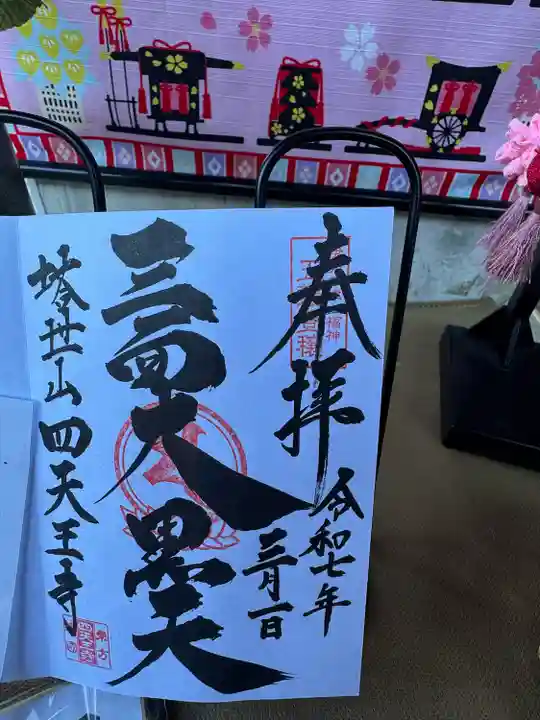 奉拝
令和七年
三月一日
三面大黒天
塔世山四天王寺